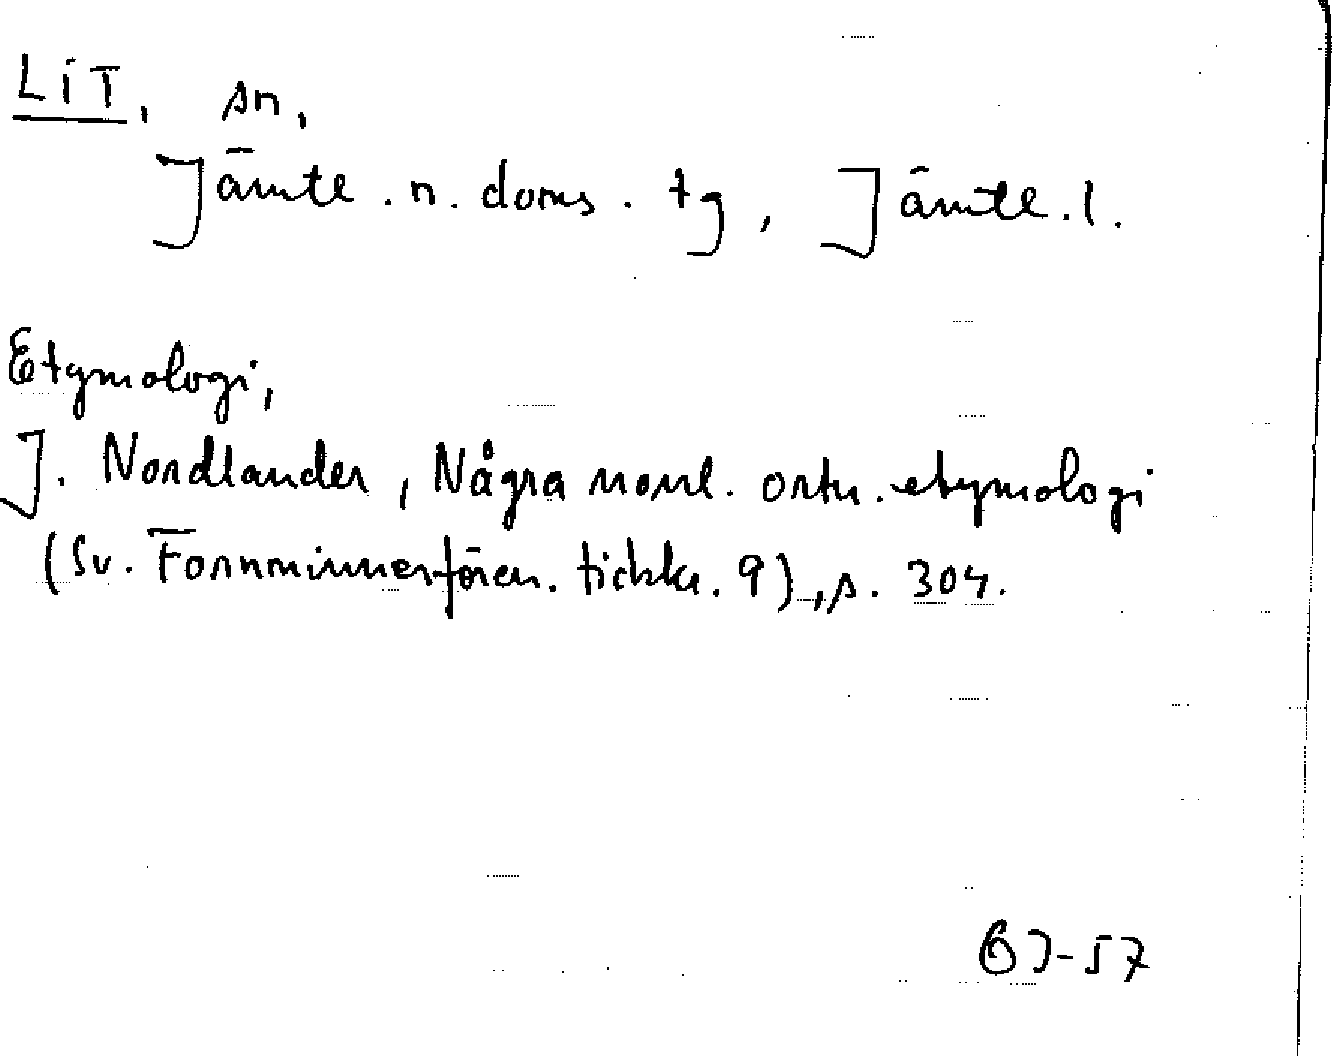 LIT, sn,
Jämtl. n. doms. tg, Jämtl. l.
Etymologi,
J. Nordlander, Några norrl. ortn. etymologi
(Sv. Fornminnesfören. tidskr. 9), s. 304.
BJ-57